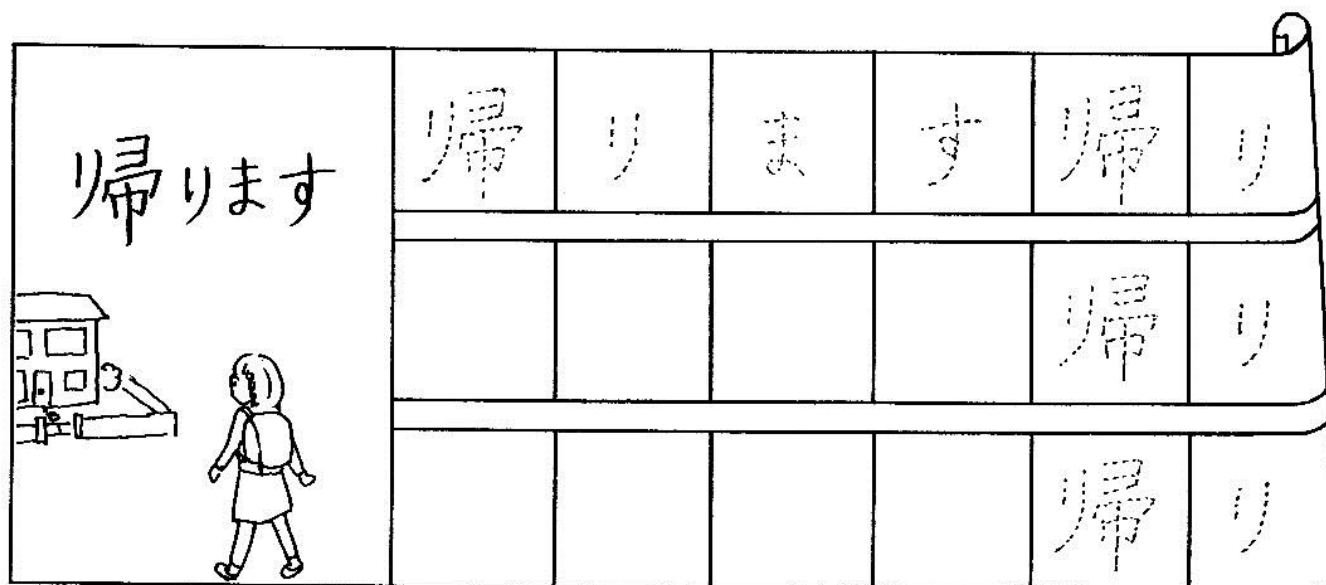 帰ります
帰ります帰り
帰り
帰り